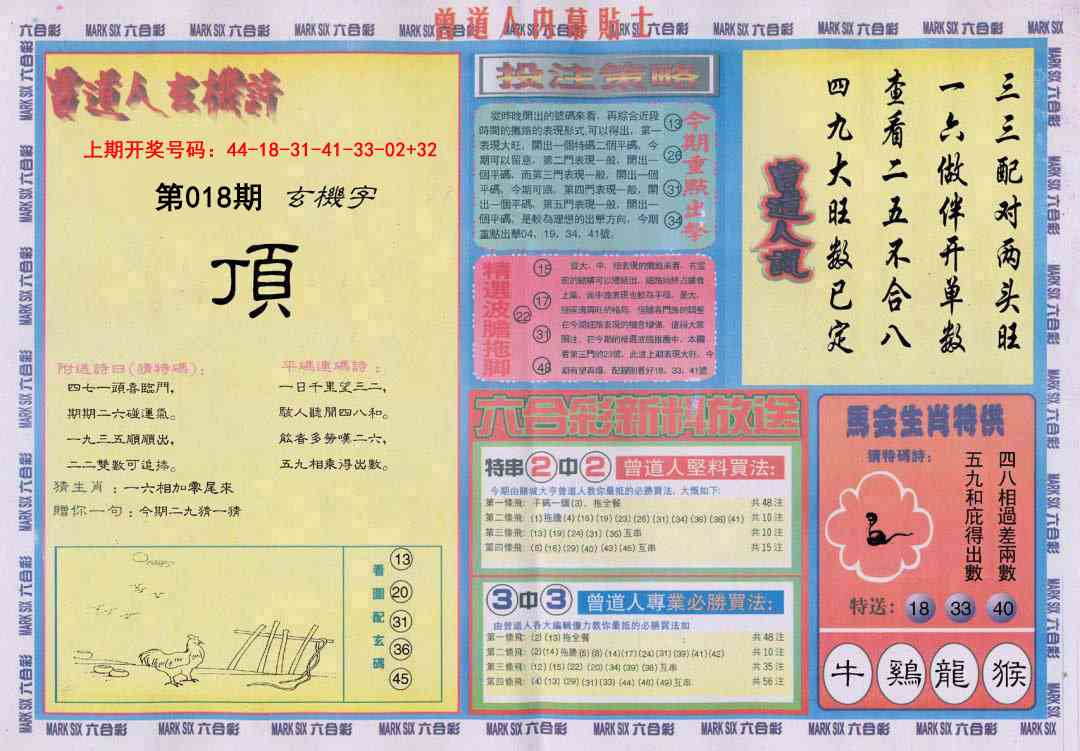 曾道人内幕貼士
MARK SIX 六合彩
曾道人玄機詩
上期开奖号码：44-18-31-41-33-02+32
第018期 玄機字
頂
附送詩曰(猜特碼)：
四七一頭喜臨門，
期期二六碰運氣。
一九三五順順出，
二二雙數可追捧。
平碼連碼詩：
一日千里望三二，
駭人聽聞四八和。
飲香多勞嘆二六，
五九相乘得出數。
猜生肖：一六相加零尾來
贈你一句：今期二九猜一猜
看圖配玄碼
13
20
31
36
45
投注策略
從昨晚開出的號碼來看，再綜合近段
時間的攤路的表現形式，可以得出，第一
表現大旺，開出一個特碼二個平碼，今
期可以留意，第二門表現一般，開出一
個平碼，而第三門表現一般，開出一個
平碼，今期可追，第四門表現一般，開
出一個平碼，第五門表現一般，開出一
個平碼，是較為理想的出擊方向，今期
重點出擊04、19、34、41號。
13
26
31
34
今期重點出擊
精選波膽拖脚
15
17
22
31
48
六合彩新料放送
特串2中2 曾道人堅料買法：
今期由賭城大亨曾道人教你最抵的必勝買法，大概如下：
第一條飛：平碼一頭(3)，拖全餐 共48注
第二條飛：(1)拖膽(4)(15)(19)(23)(26)(31)(34)(36)(38)(41) 共10注
第三條飛：(13)(19)(24)(31)(36)互串 共10注
第四條飛：(8)(16)(29)(40)(43)(45)互串 共15注
3中3 曾道人專業必勝買法：
由曾道人各大編輯傾力教你最抵的必勝買法如
第一條飛：(2)(13)拖全餐 共48注
第二條飛：(2)(14)拖膽(5)(8)(14)(17)(24)(31)(39)(41)(42) 共10注
第三條飛：(12)(15)(22)(20)(34)(39)(38)互串 共35注
第四條飛：(4)(13)(29)(31)(33)(44)(46)(49)互串 共56注
曾道人說
三三配对两头旺
一六做伴开单数
查看二五不合八
四九大旺数已定
馬会生肖特供
猜特碼詩：
四八相過差兩數
五九和庇得出數
特送：18 33 40
牛 鷄 龍 猴